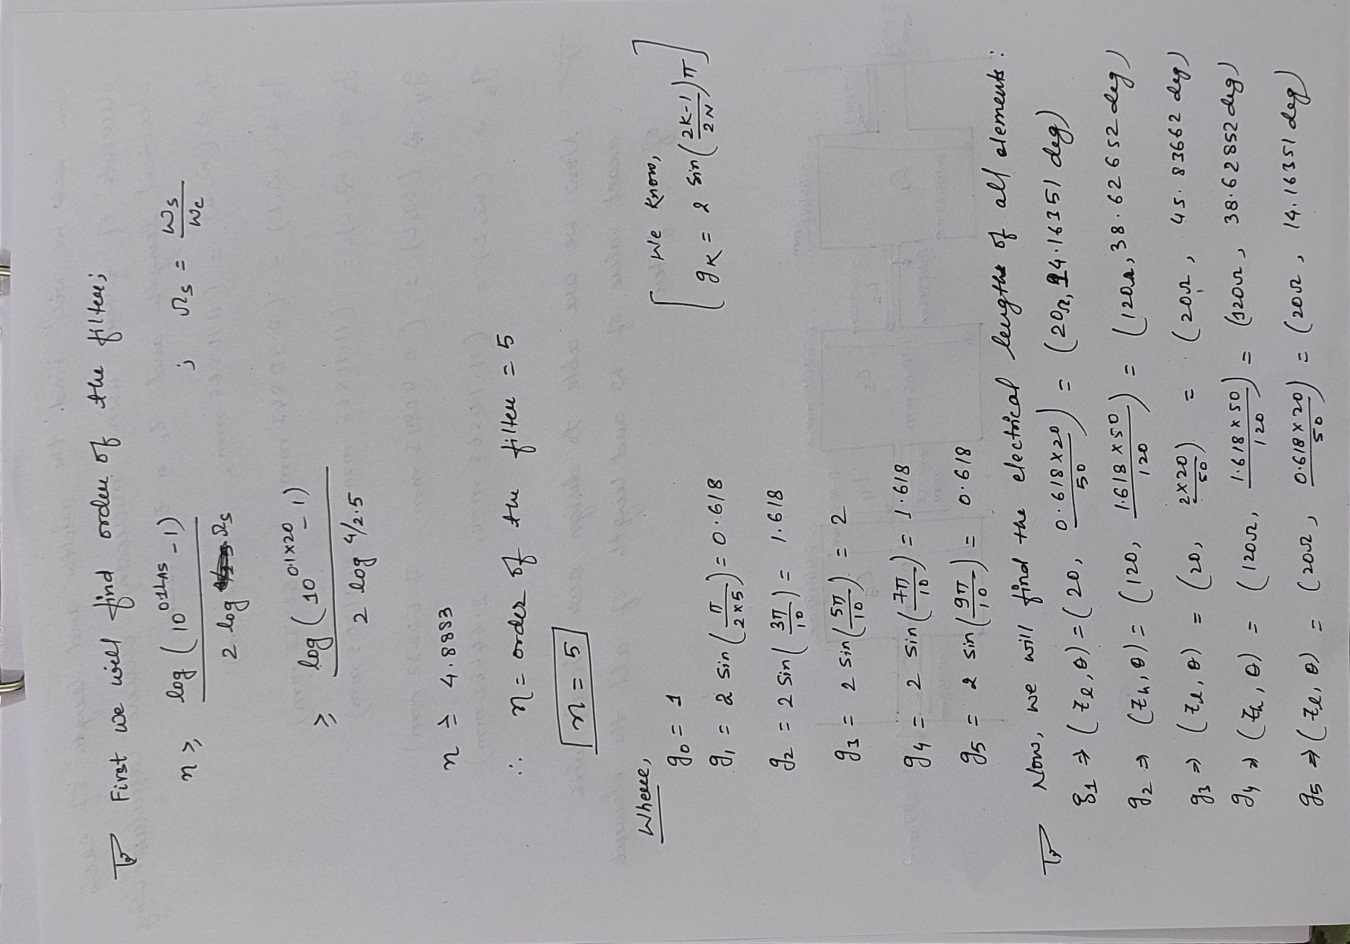 First we will find order of the filter;
n ≥ log (10^0.1LAs - 1) / 2 log Ωs ; Ωs = ωs / ωc
≥ log (10^0.1×20 - 1) / 2 log 4/2.5
n ≥ 4.8883
∴ n = order of the filter = 5
n = 5
Where,
g0 = 1
[We know, gK = 2 sin((2K-1)/2N)π]
g1 = 2 sin(π/2×5) = 0.618
g2 = 2 sin(3π/10) = 1.618
g3 = 2 sin(5π/10) = 2
g4 = 2 sin(7π/10) = 1.618
g5 = 2 sin(9π/10) = 0.618
Now, we will find the electrical lengths of all elements:
g1 ⇒ (Zl, θ) = (20, 0.618×20/50) = (20Ω, 14.16351 deg)
g2 ⇒ (Zh, θ) = (120, 1.618×50/120) = (120Ω, 38.62652 deg)
g3 ⇒ (Zl, θ) = (20, 2×20/50) = (20Ω, 45.83662 deg)
g4 ⇒ (Zh, θ) = (120Ω, 1.618×50/120) = (120Ω, 38.62852 deg)
g5 ⇒ (Zl, θ) = (20Ω, 0.618×20/50) = (20Ω, 14.16351 deg)